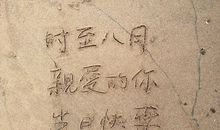 时至八月
親爱的你
生日快乐